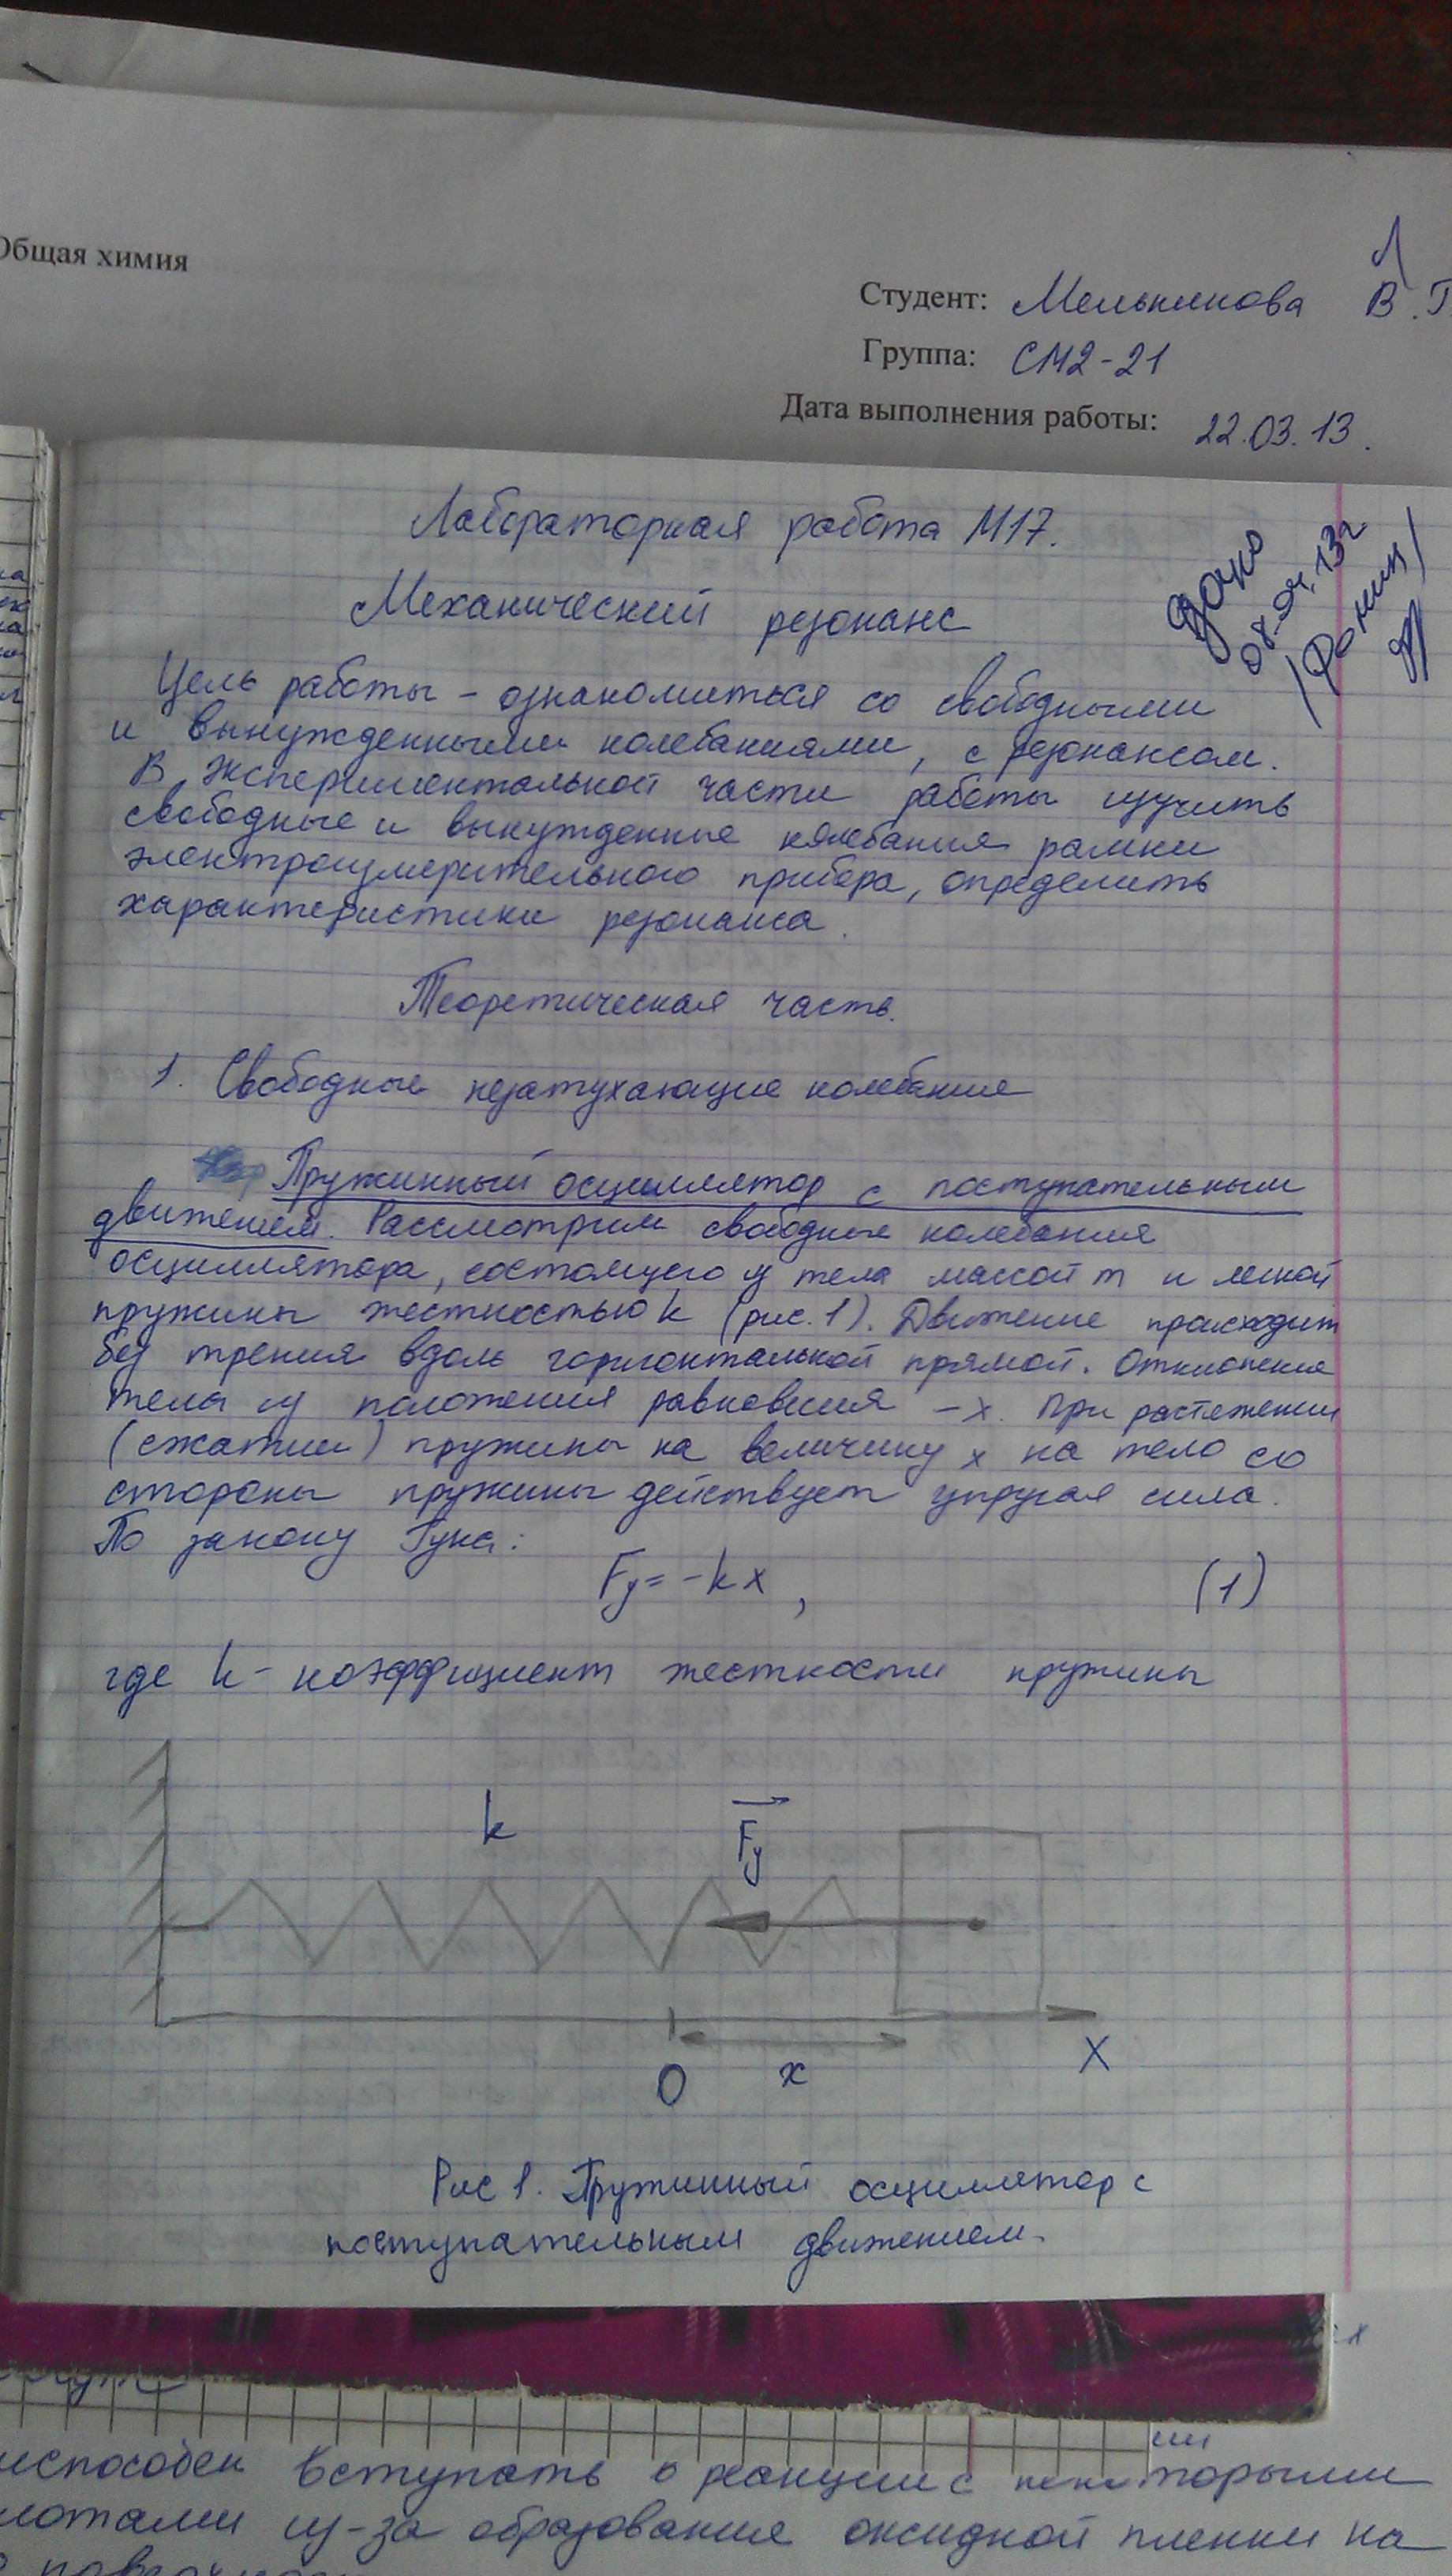 Общая химия
Студент: Мельникова В.Г
Группа: СМ2-21
Дата выполнения работы: 22.03.13.
Лабораторная работа М17.
Механический резонанс
Цель работы - ознакомиться со свободными
и вынужденными колебаниями, с резонансом.
В экспериментальной части работы изучить
свободные и вынужденные колебания рамки
электроизмерительного прибора, определить
характеристики резонанса.
Теоретическая часть.
1. Свободные незатухающие колебание
Пружинный осциллятор с поступательным
движением. Рассмотрим свободные колебания
осциллятора, состоящего из тела массой m и легкой
пружины жесткостью k (рис. 1). Движение происходит
без трения вдоль горизонтальной прямой. Отклонение
тела из положения равновесия - x. При растяжении
(сжатии) пружины на величину x на тело со
стороны пружины действует упругая сила.
По закону Гука:
Fy = -kx, (1)
где k - коэффициент жесткости пружины
k
Fy
0 x X
Рис 1. Пружинный осциллятор с
поступательным движением.
испособен вступать в реакции с некоторыми
из-за образования оксидной пленки на